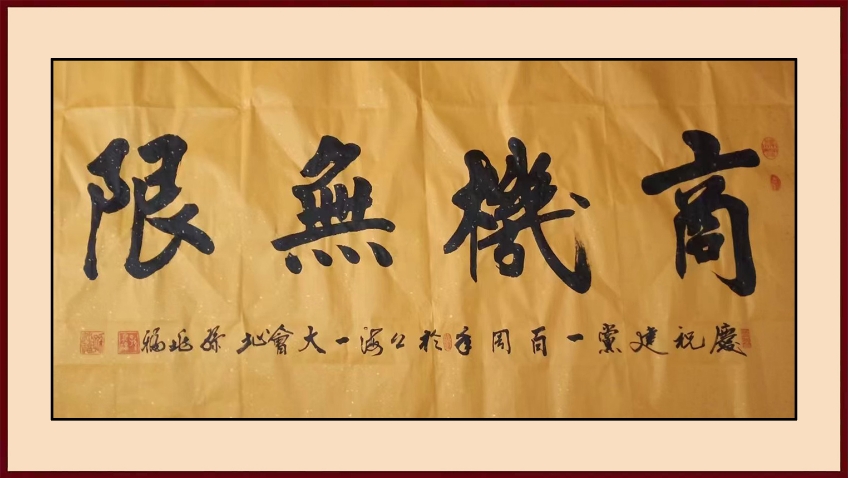 商機無限
慶祝建黨一百周年於上海一大會址孫兆